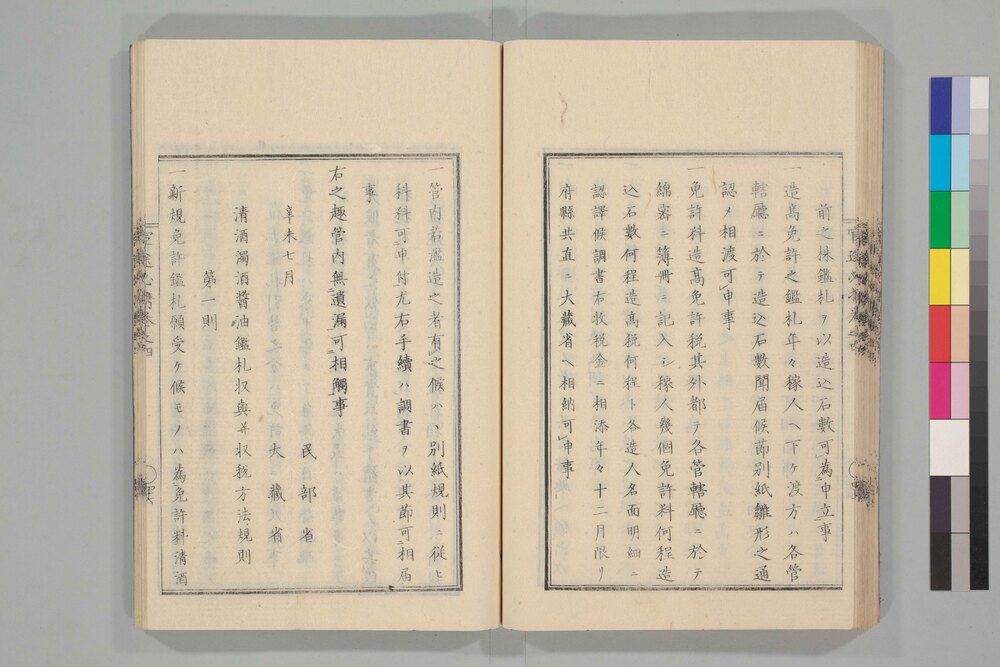 前之株鑑札ヲ以造込石數可為申立事
一造高免許之鑑札年々稼人ヘ下ケ渡方ハ各管
轄廳ニ於テ造込石數聞届候節別紙雛形之通
認メ相渡可申事
一免許料造高免許税其外都テ各管轄廳ニ於テ
綿密ニ簿冊ニ記入シ稼人幾個免許料何程造
込石數何程造高税何程ト各造人名面明細ニ
認譯候調書右收税金ニ相添年々十二月限リ
府縣共直ニ大藏省ヘ相納可申事
一管内若濫造之者有之候ハヽ別紙規則ニ從ヒ
科料可申付尤右手續ハ調書ヲ以其節可相届
事
右之趣管内無遺漏可相觸事
辛未七月
民部省
大藏省
清酒濁酒醬油鑑札収與并収税方法規則
第一則
一新規免許鑑札願受ケ候モノハ為免許料清酒